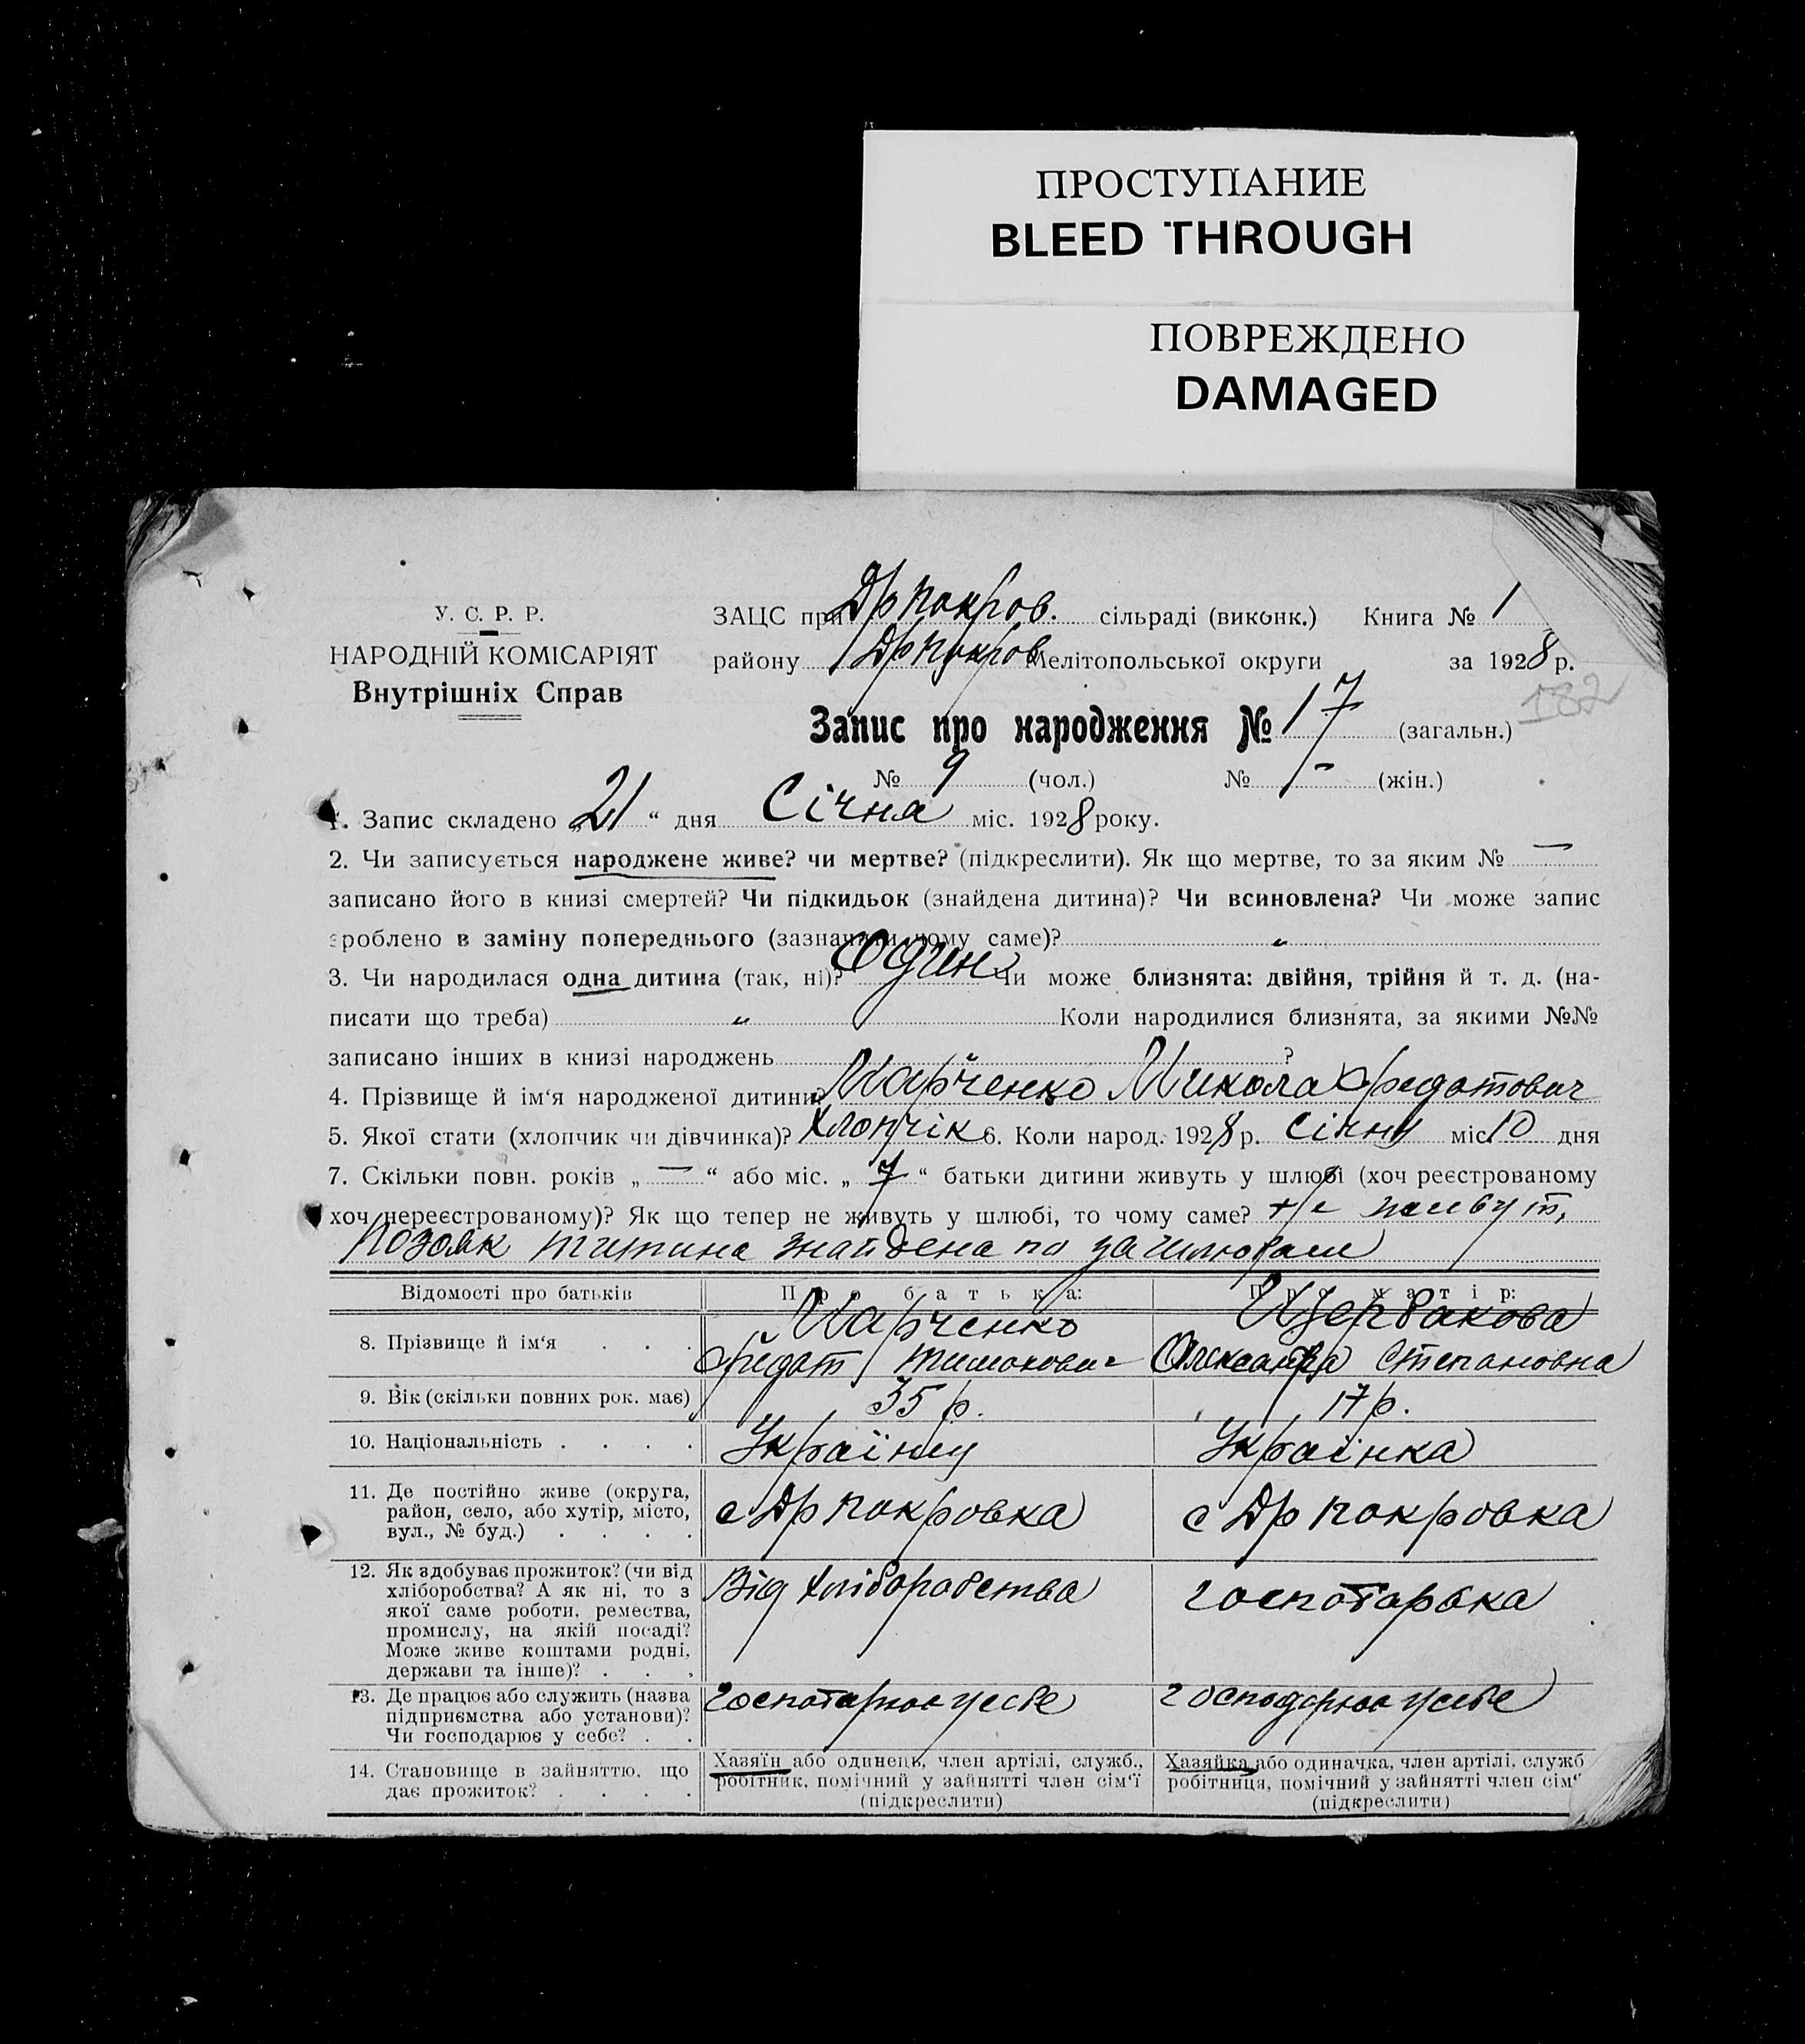 ПРОСТУПАНИЕ
BLEED THROUGH
ПОВРЕЖДЕНО
DAMAGED
У. С. Р. Р.
НАРОДНІЙ КОМІСАРІЯТ
Внутрішніх Справ
ЗАЦС при Др Покров. сільраді (виконк.) Книга № 1
району Др Покров Мелітопольської округи за 1928 р.
182
Запис про народження № 17 (загальн.)
№ 9 (чол.) № - (жін.)
1. Запис складено „21“ дня Січня міс. 1928 року.
2. Чи записується народжене живе? чи мертве? (підкреслити). Як що мертве, то за яким № —
записано його в книзі смертей? Чи підкидьок (знайдена дитина)? Чи всиновлена? Чи може запис
зроблено в заміну попереднього (зазначити чому саме)? "
3. Чи народилася одна дитина (так, ні)? Один Чи може близнята: двійня, трійня й т. д. (на-
писати що треба) " Коли народилися близнята, за якими №№
записано інших в книзі народжень ?
4. Прізвище й ім'я народженої дитини? Марченко Микола Федотович
5. Якої стати (хлопчик чи дівчинка)? Хлопчік 6. Коли народ. 1928 р. Січня міс 10 дня
7. Скільки повн. років „—“ або міс. „7“ батьки дитини живуть у шлюбі (хоч реєстрованому
хоч нереєстрованому)? Як що тепер не живуть у шлюбі, то чому саме? не
знайдена по за шлюбом
Відомості про батьків Про батька: Про матір:
8. Прізвище й ім'я . . . Марченко Щербакова
Федот Тимохович Олександра Степановна
9. Вік (скільки повних рок. має) 35 р. 17 р.
10. Національність . . . . Українец Українка
11. Де постійно живе (округа,
район, село, або хутір, місто,
вул., № буд.) . . . . с Др Покровка с Др Покровка
12. Як здобуває прожиток? (чи від
хліборобства? А як ні, то з
якої саме роботи, ремества,
промислу, на якій посаді?
Може живе коштами родні,
держави та інше)? . . . Від хліборобства госпотарька
13. Де працює або служить (назва
підприємства або установи)?
Чи господарює у себе? . . госпотарює у себе господарює у себе
14. Становище в зайняттю, що
дає прожиток? . . . .
Хазяїн або одинець, член артілі, служб.,
робітник, помічний у зайнятті член сім'ї
(підкреслити)
Хазяйка або одиначка, член артілі, служб
робітниця, помічний у зайнятті член сім'
(підкреслити)